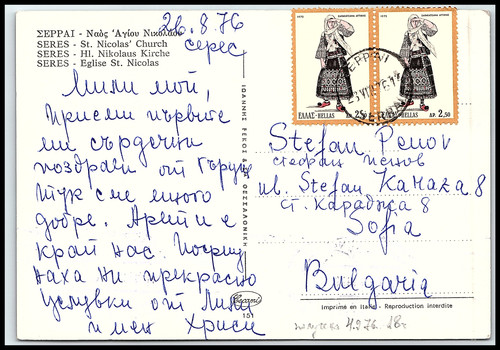 ΣΕΡΡΑΙ - Ναὸς Ἁγίου Νικολάου
SERES - St. Nicolas' Church
SERES - Hl. Nikolaus Kirche
SERES - Eglise St. Nicolas
26.8.76
серес
Мили мой,
Приеми първите
ми сърдечни
поздрави от Гърция
Тук сме много
добре.
край нас. Посрещ
наха ни прекрасно
Целувки от Лили
и мен Христ
ΙΩΑΝΝΗΣ ΡΕΚΟΣ & ΘΕΣΣΑΛΟΝΙΚΗ
151
1972
1972
ΕΛΛΑΣ-HELLAS ΔΡ. 2,50
ΕΛΛΑΣ-HELLAS ΔΡ. 2,50
ΣΕΡΡΑΙ
SERRAI
Stefan Penov
стефан пенов
ul. Stefan Karaza 8
ст. караджа 8
Sofia
Bulgaria
Imprimé en Italie - Reproduction interdite
получена 4.9.76